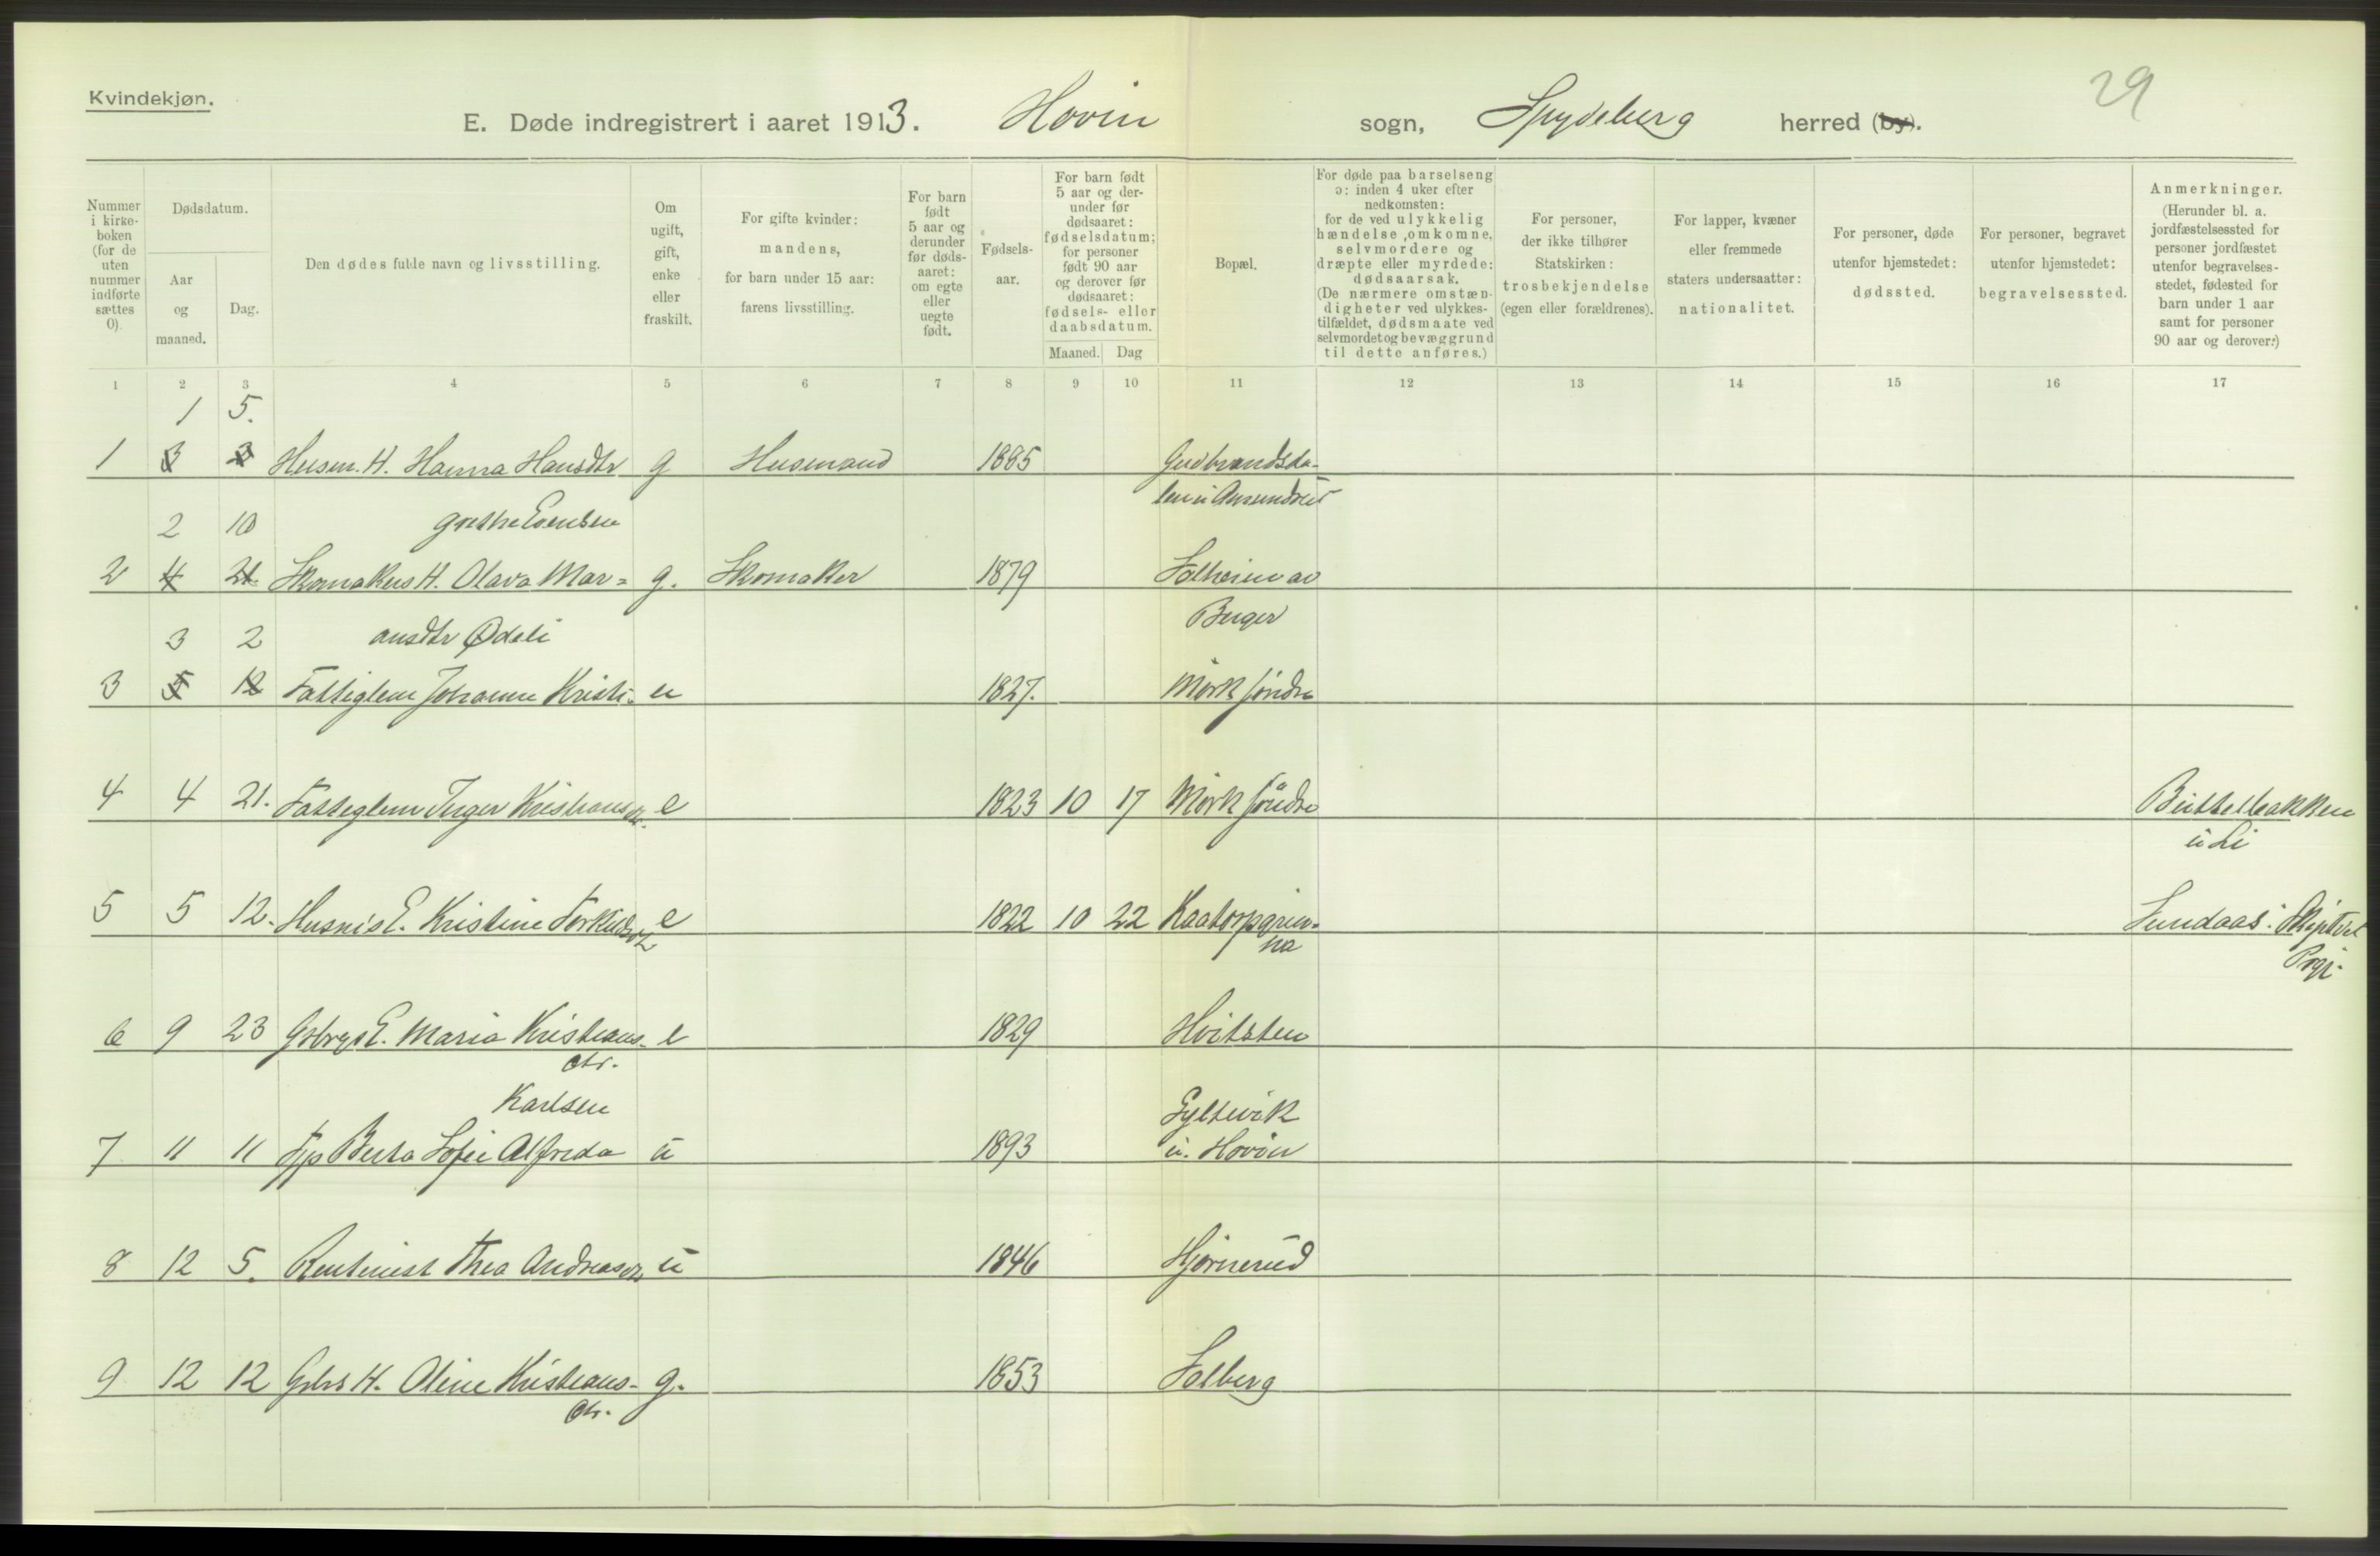 Kvindekjøn.
29
E. Døde indregistrert i aaret 1913. Hovin sogn, Spydeberg herred (by).
Nummer i kirkeboken (for de uten nummer indførte sættes 0).
Dødsdatum.
Aar og maaned.
Dag.
Den dødes fulde navn og livsstilling.
Om ugift, gift, enke eller fraskilt.
For gifte kvinder: mandens, for barn under 15 aar: farens livsstilling.
For barn født 5 aar og derunder før dødsaaret: om egte eller uegte født.
Fødselsaar.
For barn født 5 aar og derunder før dødsaaret: fødselsdatum; for personer født 90 aar og derover før dødsaaret: fødsels- eller daabsdatum.
Maaned. Dag
Bopæl.
For døde paa barselseng ɔ: inden 4 uker efter nedkomsten: for de ved ulykkelig hændelse omkomne, selvmordere og dræpte eller myrdede: dødsaarsak. (De nærmere omstændigheter ved ulykkestilfældet, dødsmaate ved selvmordet og bevæggrund til dette anføres.)
For personer, der ikke tilhører Statskirken: trosbekjendelse (egen eller forældrenes).
For lapper, kvæner eller fremmede staters undersaatter: nationalitet.
For personer, døde utenfor hjemstedet: dødssted.
For personer, begravet utenfor hjemstedet: begravelsessted.
Anmerkninger. (Herunder bl. a. jordfæstelsessted for personer jordfæstet utenfor begravelsesstedet, fødested for barn under 1 aar samt for personer 90 aar og derover.)
1 2 3 4 5 6 7 8 9 10 11 12 13 14 15 16 17
1 5.
1 3 3 Husm. H. Hanna Hansdtr g Husmand 1885 Gudbrandsda-
len u Amundrud
2 10 Grethe Evensen
2 4 21. Skomakers H. Olava Mar= g. Skomaker 1879 Solheim av
Berger
3 2 ansdtr Ødeli
3 5 12 Fattiglem Johanne Kristi- u 1827. Mörk söndre
4 4 21. Fattiglem Inger Kristiansdtr. e 1823 10 17 Mörk söndre Büttelbakken
u Li
5 5 12. Husmds E. Kristine Torkildsdtr e 1822 10 22 Kaatorpgren-
na
Sundaas i Skiptvet
Prgj.
6 9 23 Gbrgs E. Maria Kristians- e 1829 Hvitsten
dtr.
Karlsen Gyltvik
7 11 11 Tjp Berta Sofie Alfreda u 1893 u. Hovin
8 12 5. Rentenist Thea Andreasdtr u 1846 Hjørnerud
9 12 12 Gbrs H. Oline Kristians- g. 1853 Solberg
dtr.